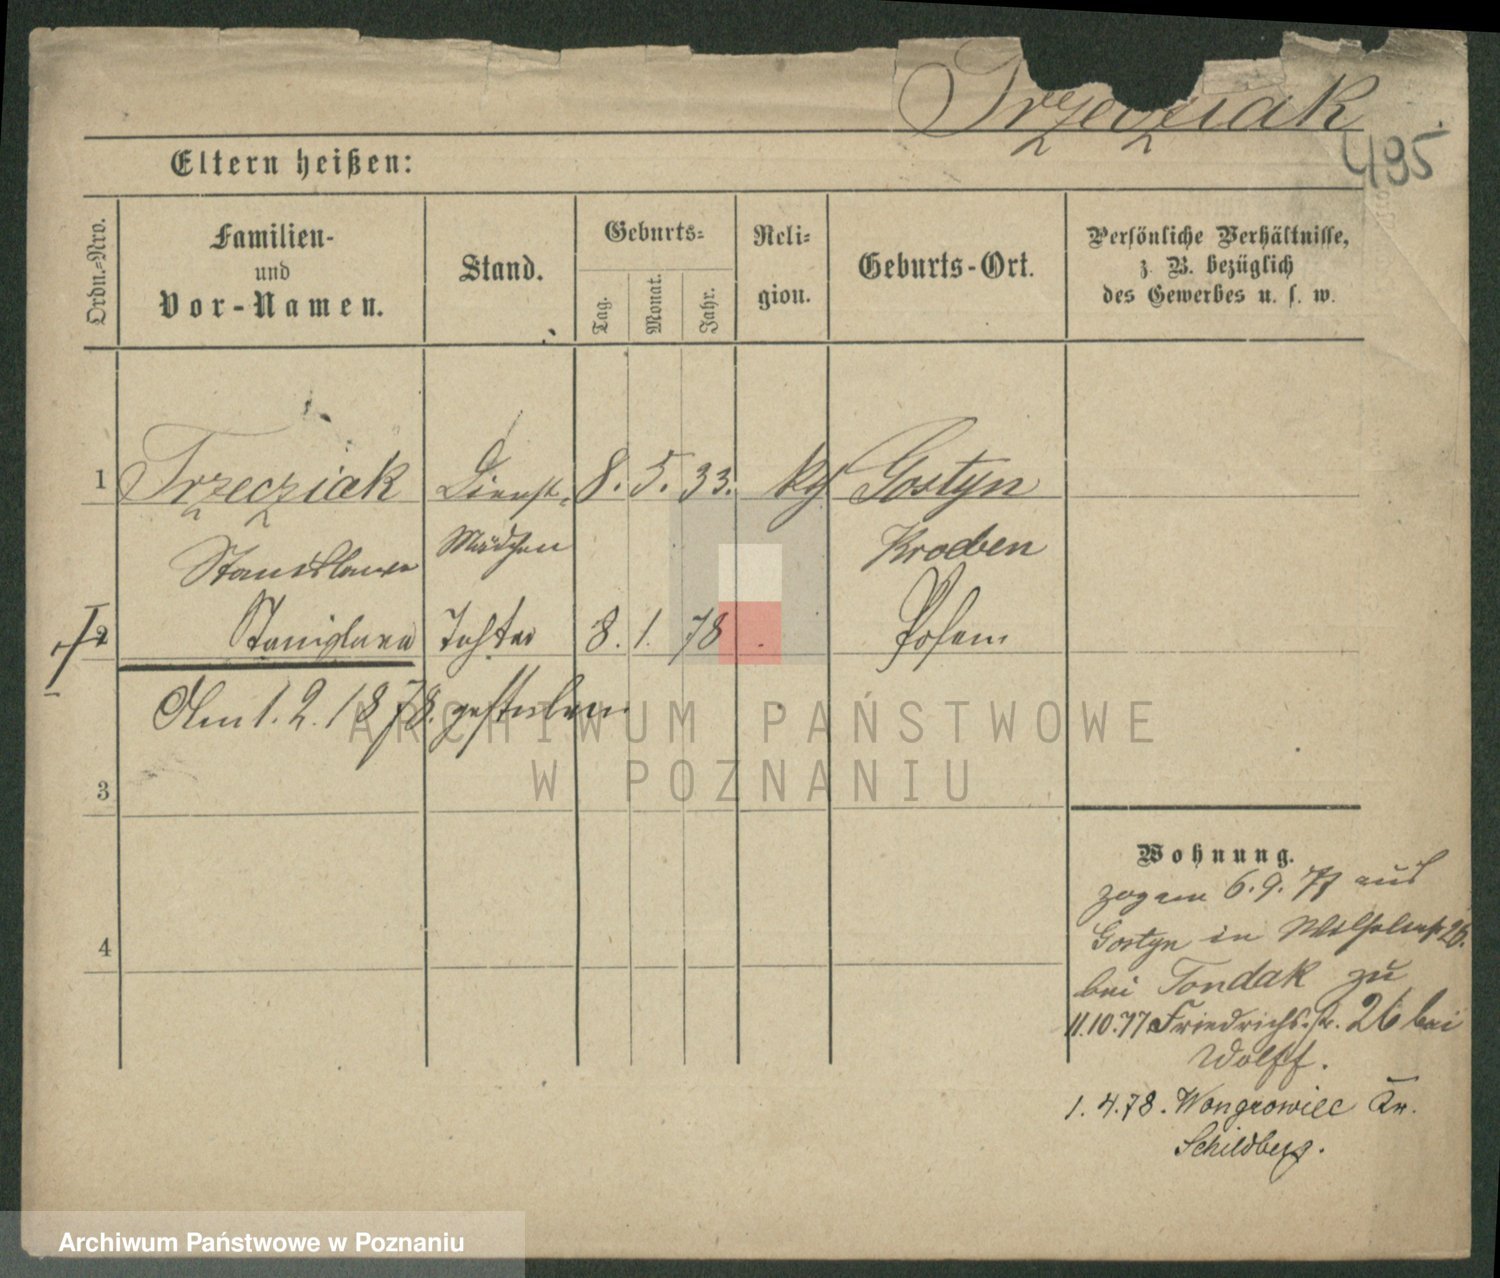 Trzecziak
495
Eltern heißen:
Ordn.=Nro.
Familien-
und
Vor-Namen.
Stand.
Geburts=
Tag.
Monat.
Jahr.
Reli=
gion.
Geburts-Ort.
Persönliche Verhältnisse,
z. B. bezüglich
des Gewerbes u. s. w.
1 Trzecziak Dienst- 8. 5. 33. kg Gostyn
Stanislawa Mädchen Kroeben
2 Stanislava Tochter 8. 1. 78 Posen
Am 1. 2. 1878. gestorben
ARCHIWUM PAŃSTWOWE
W POZNANIU
3
4
Wohnung.
zog am 6. 9. 77 aus
Gostyn in Wilhelmst 26.
bei Tondak zu
11.10.77 Friedrichs.str. 26 bei
Wolff.
1. 4. 78. Wongrowiec Kr.
Schildberg.
Archiwum Państwowe w Poznaniu